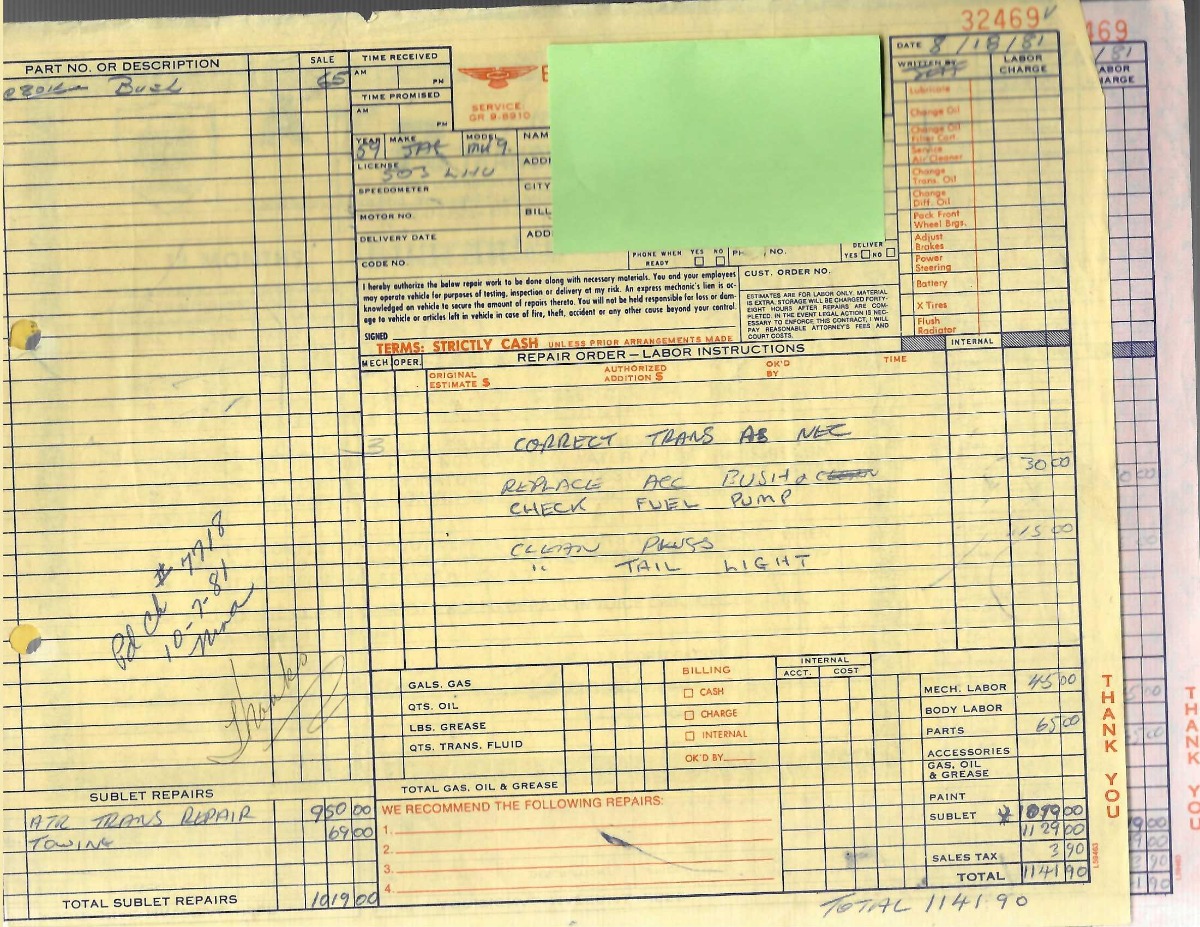 32469
469
PART NO. OR DESCRIPTION
SALE
65
TIME RECEIVED
AM
PM
TIME PROMISED
AM
PM
SERVICE:
GR 9-8910
DATE 8/18/81
WRITTEN BY
LABOR CHARGE
YEAR 59 MAKE JAG MODEL MK 9.
LICENSE 503 LHU
SPEEDOMETER
MOTOR NO.
DELIVERY DATE
CODE NO.
NAM
ADD
CITY
BILL
ADD
PHONE WHEN READY YES NO
NO.
DELIVER YES NO
CUST. ORDER NO.
Lubricate
Change Oil
Change Oil Filter Cart.
Service Air Cleaner
Change Trans. Oil
Change Diff. Oil
Pack Front Wheel Brgs.
Adjust Brakes
Power Steering
Battery
X Tires
Flush Radiator
I hereby authorize the below repair work to be done along with necessary materials. You and your employees
may operate vehicle for purposes of testing, inspection or delivery at my risk. An express mechanic's lien is ac-
knowledged on vehicle to secure the amount of repairs thereto. You will not be held responsible for loss or dam-
age to vehicle or articles left in vehicle in case of fire, theft, accident or any other cause beyond your control.
SIGNED
ESTIMATES ARE FOR LABOR ONLY, MATERIAL
IS EXTRA. STORAGE WILL BE CHARGED FORTY-
EIGHT HOURS AFTER REPAIRS ARE COM-
PLETED. IN THE EVENT LEGAL ACTION IS NEC-
ESSARY TO ENFORCE THIS CONTRACT, I WILL
PAY REASONABLE ATTORNEY'S FEES AND
COURT COSTS.
TERMS: STRICTLY CASH UNLESS PRIOR ARRANGEMENTS MADE
MECH OPER. REPAIR ORDER – LABOR INSTRUCTIONS INTERNAL
ORIGINAL ESTIMATE $ AUTHORIZED ADDITION $ OK'D BY TIME
3 CORRECT TRANS AS NEC
REPLACE ACC BUSH & CLEAN 30 00
CHECK FUEL PUMP
CLEAN PLUGS 15 00
" TAIL LIGHT
Pd Ck # 7718
10-7-81
Nina
Thanks
GALS. GAS
QTS. OIL
LBS. GREASE
QTS. TRANS. FLUID
TOTAL GAS, OIL & GREASE
BILLING
CASH
CHARGE
INTERNAL
OK'D BY
INTERNAL
ACCT. COST
MECH. LABOR 45 00
BODY LABOR
PARTS 65 00
ACCESSORIES
GAS, OIL & GREASE
PAINT
SUBLET 1019 00
1129 00
SALES TAX 3 90
TOTAL 1141 90
TOTAL 1141.90
SUBLET REPAIRS
ATR TRANS REPAIR 950 00
TOWING 69 00
TOTAL SUBLET REPAIRS 1019 00
WE RECOMMEND THE FOLLOWING REPAIRS:
1.
2.
3.
4.
THANK YOU
THANK YOU